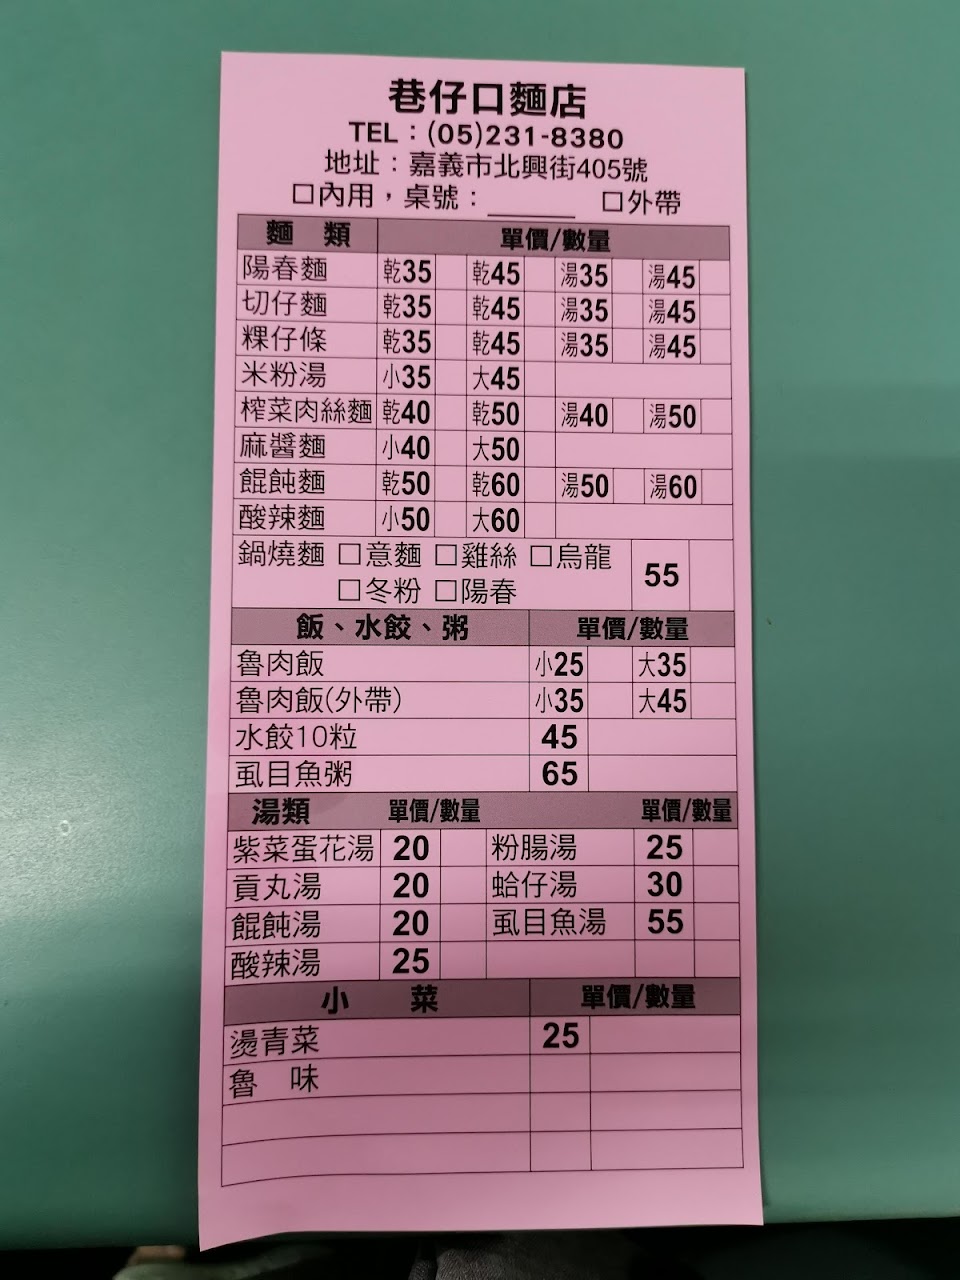 巷仔口麵店
TEL：(05)231-8380
地址：嘉義市北興街405號
□內用，桌號：______ □外帶
麵 類 單價/數量
陽春麵 乾35 乾45 湯35 湯45
切仔麵 乾35 乾45 湯35 湯45
粿仔條 乾35 乾45 湯35 湯45
米粉湯 小35 大45
榨菜肉絲麵 乾40 乾50 湯40 湯50
麻醬麵 小40 大50
餛飩麵 乾50 乾60 湯50 湯60
酸辣麵 小50 大60
鍋燒麵 □意麵 □雞絲 □烏龍 55
□冬粉 □陽春
飯、水餃、粥 單價/數量
魯肉飯 小25 大35
魯肉飯(外帶) 小35 大45
水餃10粒 45
虱目魚粥 65
湯類 單價/數量 單價/數量
紫菜蛋花湯 20 粉腸湯 25
貢丸湯 20 蛤仔湯 30
餛飩湯 20 虱目魚湯 55
酸辣湯 25
小 菜 單價/數量
燙青菜 25
魯 味